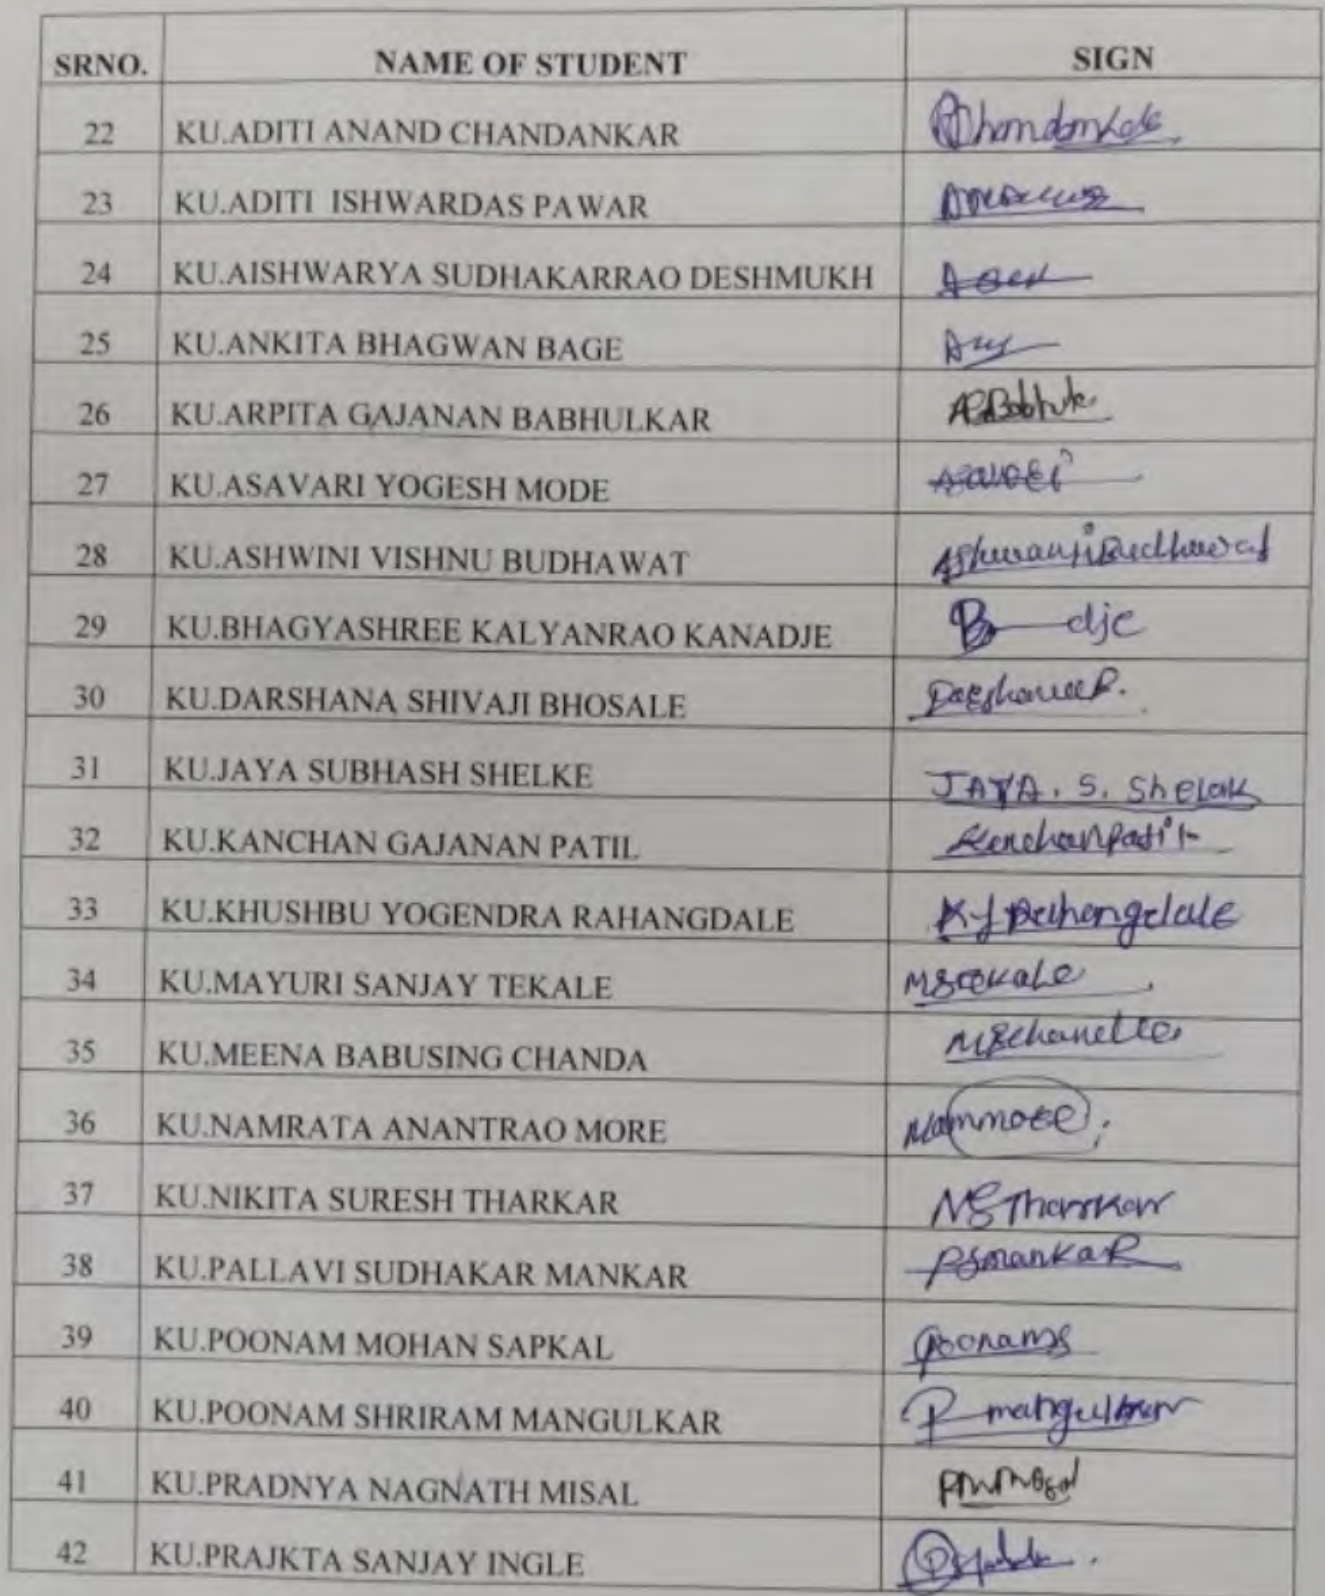 SRNO. NAME OF STUDENT SIGN
22 KU.ADITI ANAND CHANDANKAR
23 KU.ADITI ISHWARDAS PAWAR
24 KU.AISHWARYA SUDHAKARRAO DESHMUKH
25 KU.ANKITA BHAGWAN BAGE
26 KU.ARPITA GAJANAN BABHULKAR
27 KU.ASAVARI YOGESH MODE
28 KU.ASHWINI VISHNU BUDHAWAT
29 KU.BHAGYASHREE KALYANRAO KANADJE
30 KU.DARSHANA SHIVAJI BHOSALE
31 KU.JAYA SUBHASH SHELKE JAYA. S. Shelak
32 KU.KANCHAN GAJANAN PATIL Kanchanpatil
33 KU.KHUSHBU YOGENDRA RAHANGDALE
34 KU.MAYURI SANJAY TEKALE
35 KU.MEENA BABUSING CHANDA
36 KU.NAMRATA ANANTRAO MORE
37 KU.NIKITA SURESH THARKAR NSTharkar
38 KU.PALLAVI SUDHAKAR MANKAR PSmankaR
39 KU.POONAM MOHAN SAPKAL poonams
40 KU.POONAM SHRIRAM MANGULKAR P mangulkar
41 KU.PRADNYA NAGNATH MISAL
42 KU.PRAJKTA SANJAY INGLE